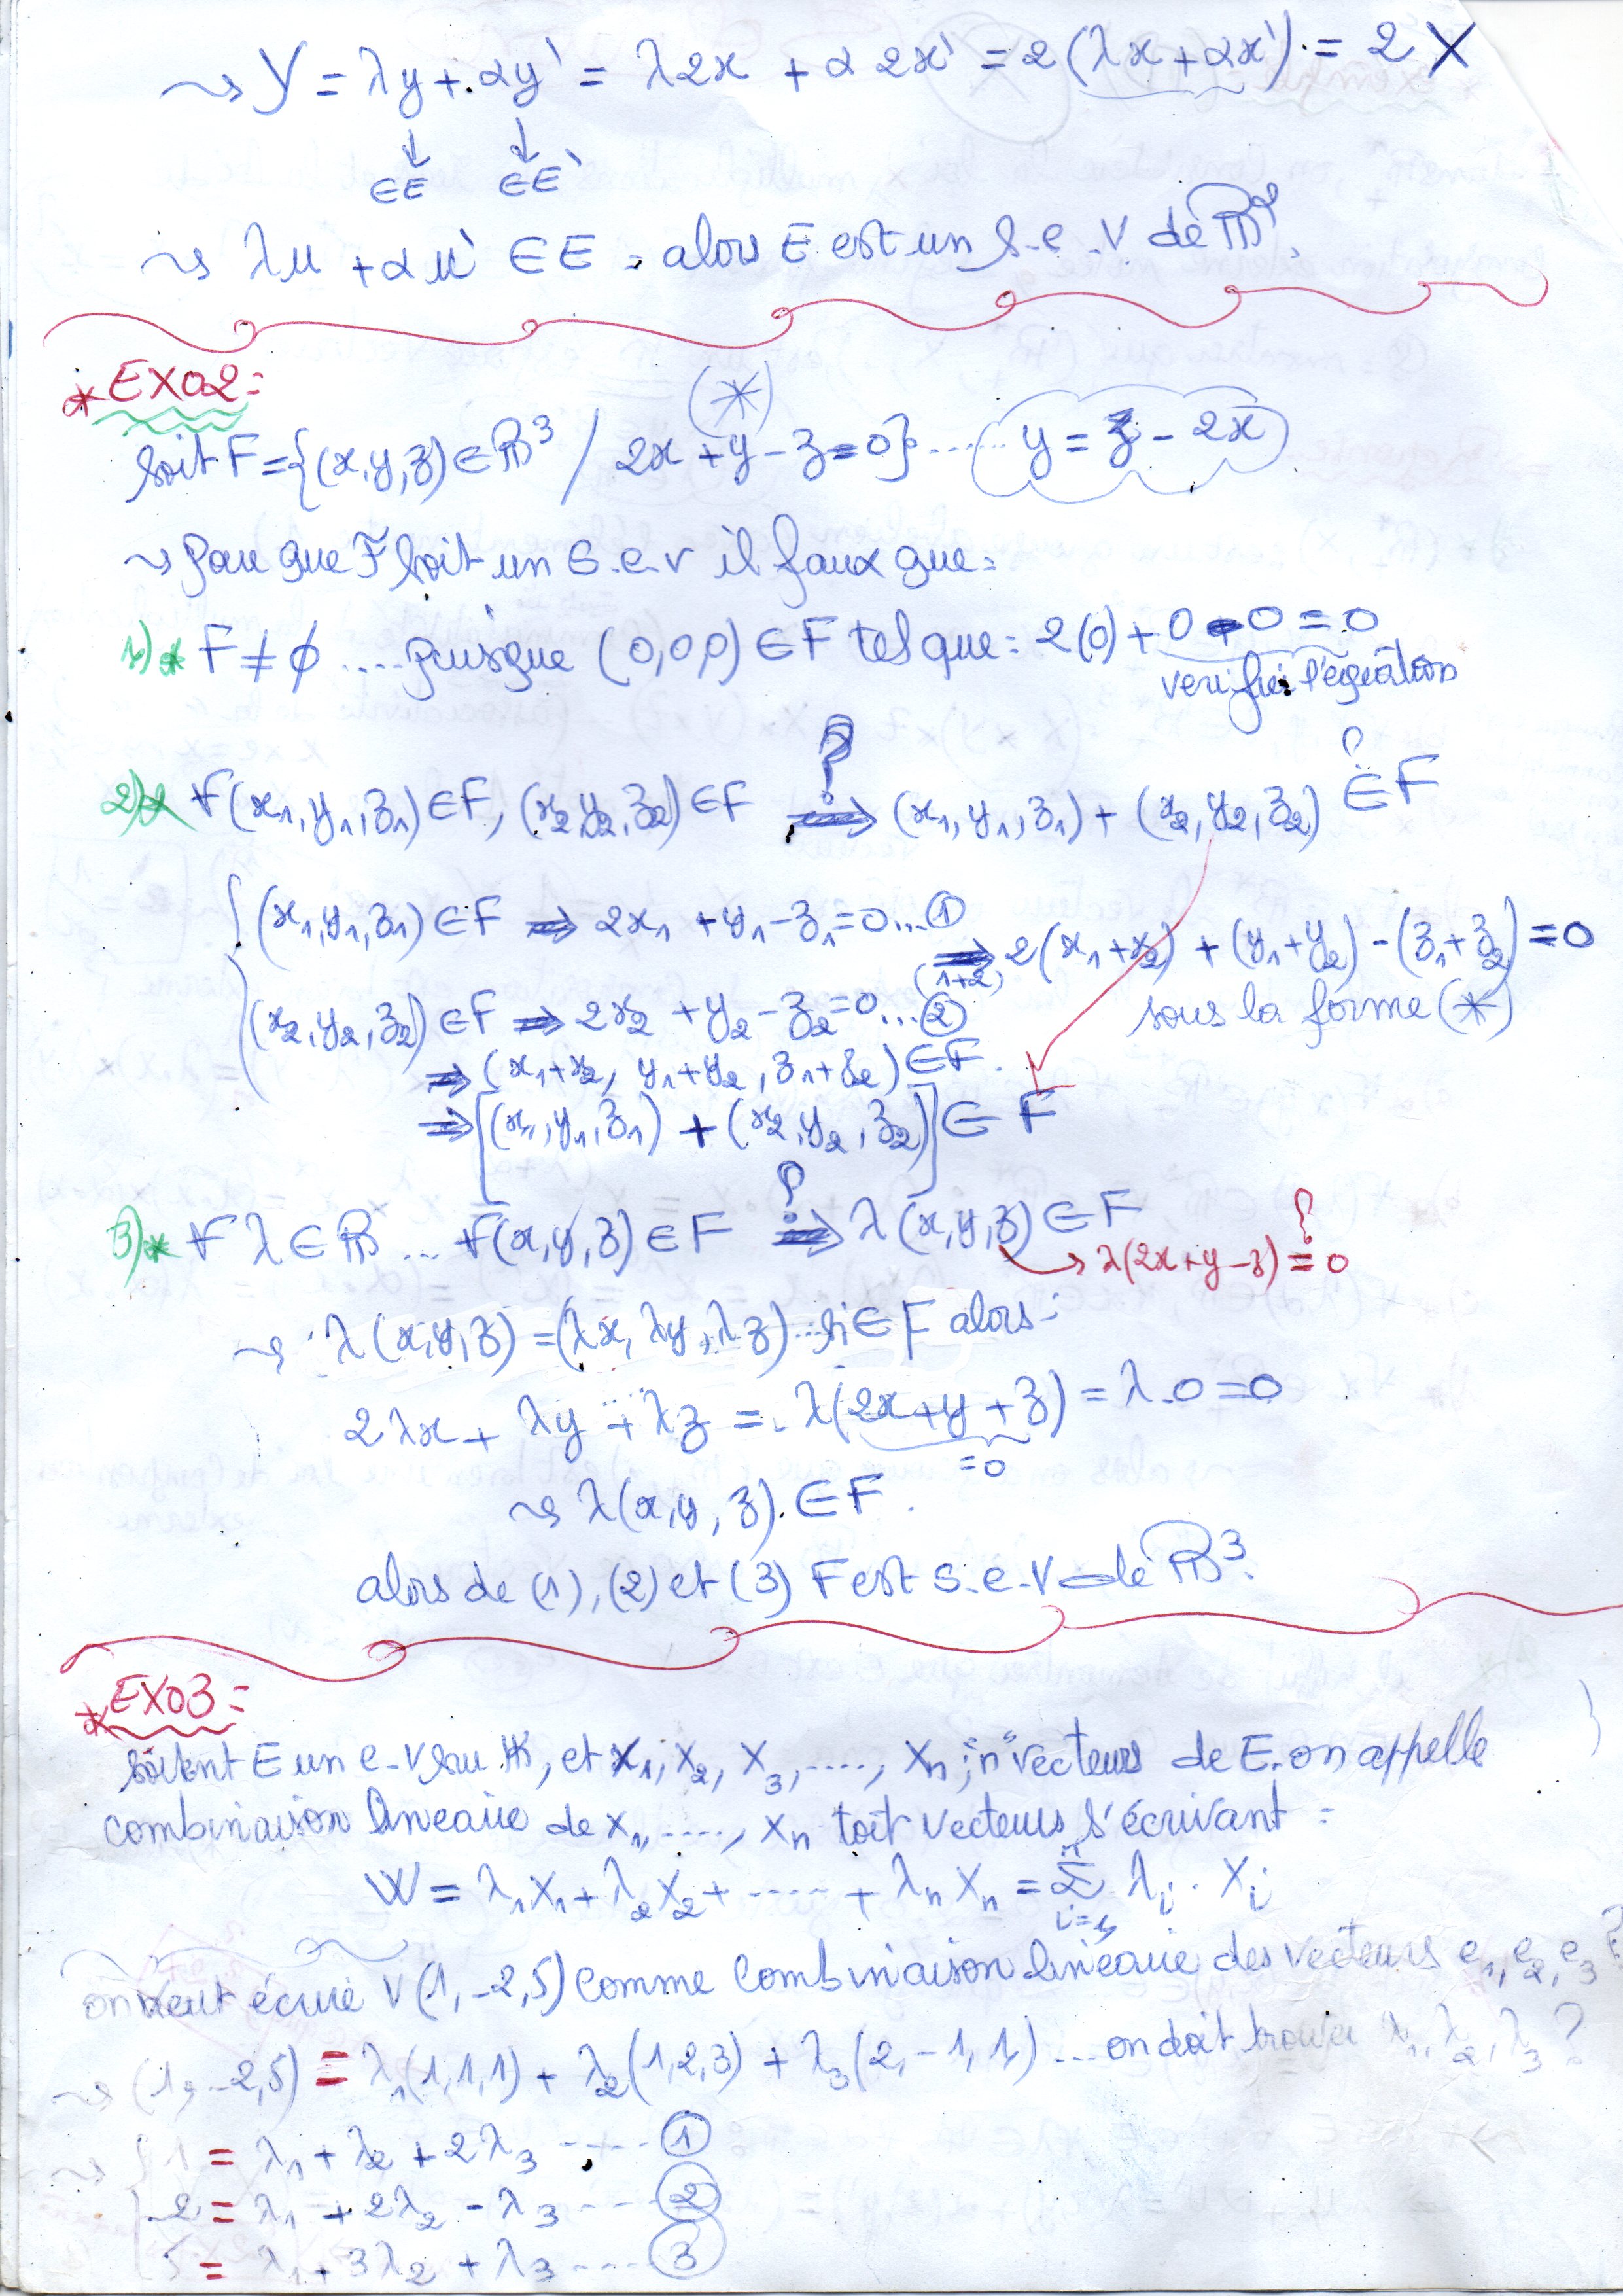 ⇝ Y = λy + αy' = λ2x + α 2x' = 2(λx + αx') = 2X
↓ ↓
∈E ∈E'
⇝ λu + αu' ∈ E . alors E est un s.e.v de ℝ².
* EX02:
(*)
soit F = {(x,y,z) ∈ ℝ³ / 2x + y - z = 0} ...... y = z - 2x
⇝ pour que F soit un s.e.v il faux que:
1)* F ≠ ∅ .... puisque (0,0,0) ∈ F tel que: 2(0) + 0 - 0 = 0
verifier l'equation
2)* ∀(x₁,y₁,z₁) ∈ F, (x₂,y₂,z₂) ∈ F ?⇒ (x₁,y₁,z₁) + (x₂,y₂,z₂) ?∈ F
(x₁,y₁,z₁) ∈ F ⇒ 2x₁ + y₁ - z₁ = 0 ... ①
⇒ (1+2) 2(x₁+x₂) + (y₁+y₂) - (z₁+z₂) = 0
(x₂,y₂,z₂) ∈ F ⇒ 2x₂ + y₂ - z₂ = 0 ... ②
sous la forme (*)
⇒ (x₁+x₂, y₁+y₂, z₁+z₂) ∈ F.
⇒ [(x₁,y₁,z₁) + (x₂,y₂,z₂)] ∈ F
3)* ∀ λ ∈ ℝ ... ∀(x,y,z) ∈ F ?⇒ λ(x,y,z) ∈ F
→ λ(2x+y-z) ?= 0
⇝ λ(x,y,z) = (λx, λy, λz) ... si ∈ F alors:
2λx + λy + λz = λ(2x+y+z) = λ.0 = 0
= 0
⇝ λ(x,y,z) ∈ F.
alors de (1), (2) et (3) F est s.e.v de ℝ³.
* EX03:
soient E un e.v sur 𝕂, et x₁, x₂, x₃, ...., xₙ; "n" vecteurs de E. on appelle
combinaison lineaire de x₁, ...., xₙ toit vecteurs s'écrivant:
W = λ₁x₁ + λ₂x₂ + ..... + λₙxₙ = Σⁿᵢ₌₁ λᵢ . xᵢ
on veut écrire V(1,-2,5) comme combinaison lineaire des vecteurs e₁, e₂, e₃ ?
⇝ (1,-2,5) = λ₁(1,1,1) + λ₂(1,2,3) + λ₃(2,-1,1) ... on doit trouver λ₁, λ₂, λ₃ ?
⇝ { 1 = λ₁ + λ₂ + 2λ₃ ..... ①
-2 = λ₁ + 2λ₂ - λ₃ ..... ②
5 = λ₁ + 3λ₂ + λ₃ ..... ③